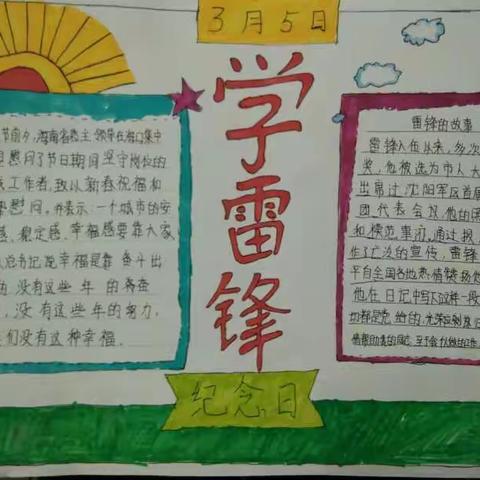 3月5日
学雷锋
纪念日
节前夕,海南省委主领导在海口集中
慰问了节日期间坚守岗位的
工作者,致以新春祝福和
慰问,并表示:一个城市的安
感、稳定感、幸福感要靠大家
幸福是靠奋斗出
没有这些年的
,没有这些年的努力,
们没有这种幸福.
雷锋的故事
雷锋入伍以来,多次
奖,他被选为市人大
出席过沈阳军区首届
团代表会议,他的
和模范事迹,通过报
作了广泛的宣传,雷锋
平自全国各地热情赞扬他
他在日记中写下这样一段
切都是党给的,光荣应